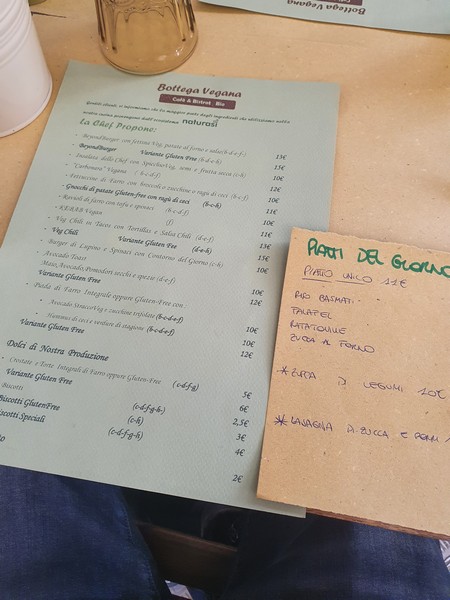 Bottega Vegana
Bottega Vegana
Café & Bistrot Bio
Gentili clienti, vi informiamo che la maggior parte degli ingredienti che utilizziamo nella
nostra cucina provengono dall'ecosistema naturasì
La Chef Propone:
- BeyondBurger con fettine Veg, patate al forno e salsa(b-d-e-f-) 13€
- BeyondBurger Variante Gluten Free (b-d-e-h) 15€
(c-h) 10€
- "Carbonara" Vegana (b-c-d-f) 12€
- Fettuccine di Farro con broccoli o zucchine o ragù di ceci (b-c-f) 10€
- Gnocchi di patate Gluten-free con ragù di ceci (b-c-h) 11€
- Ravioli di farro con tofu e spinaci (b-c-d-f) 10€
- KEBAB Vegan (f) 11€
- Veg Chili in Tacos con Tortillas e Salsa Chili (d-e-f) 13€
- Veg Chili Variante Gluten Free (d-e-h) 15€
- Burger di Lupino e Spinaci con Contorno del Giorno (c-h) 10€
- Avocado Toast
Maio, Avocado, Pomodori secchi e spezie (d-e-f) 10€
Variante Gluten Free 12€
- Piada di Farro Integrale oppure Gluten-Free con
- Avocado StraccoVeg e zucchine trifolate (b-c-d-e-f) 10€
- Hummus di ceci e verdure di stagione (b-c-d-e-f) 10€
Variante Gluten Free 12€
Dolci di Nostra Produzione
- Crostate e Torte Integrali di Farro oppure Gluten-Free (c-d-f-g) 5€
Variante Gluten Free 6€
Biscotti (c-d-f-g-h) 2,5€
Biscotti GlutenFree (c-h) 3€
Biscotti Speciali (c-d-f-g-h) 4€
2€
PIATTI DEL GIORNO
PIATTO UNICO 11€
RISO BASMATI
FALAFEL
RATATOUILLE
ZUCCA AL FORNO
* ZUPPA DI LEGUMI 10€
* LASAGNA DI ZUCCA E